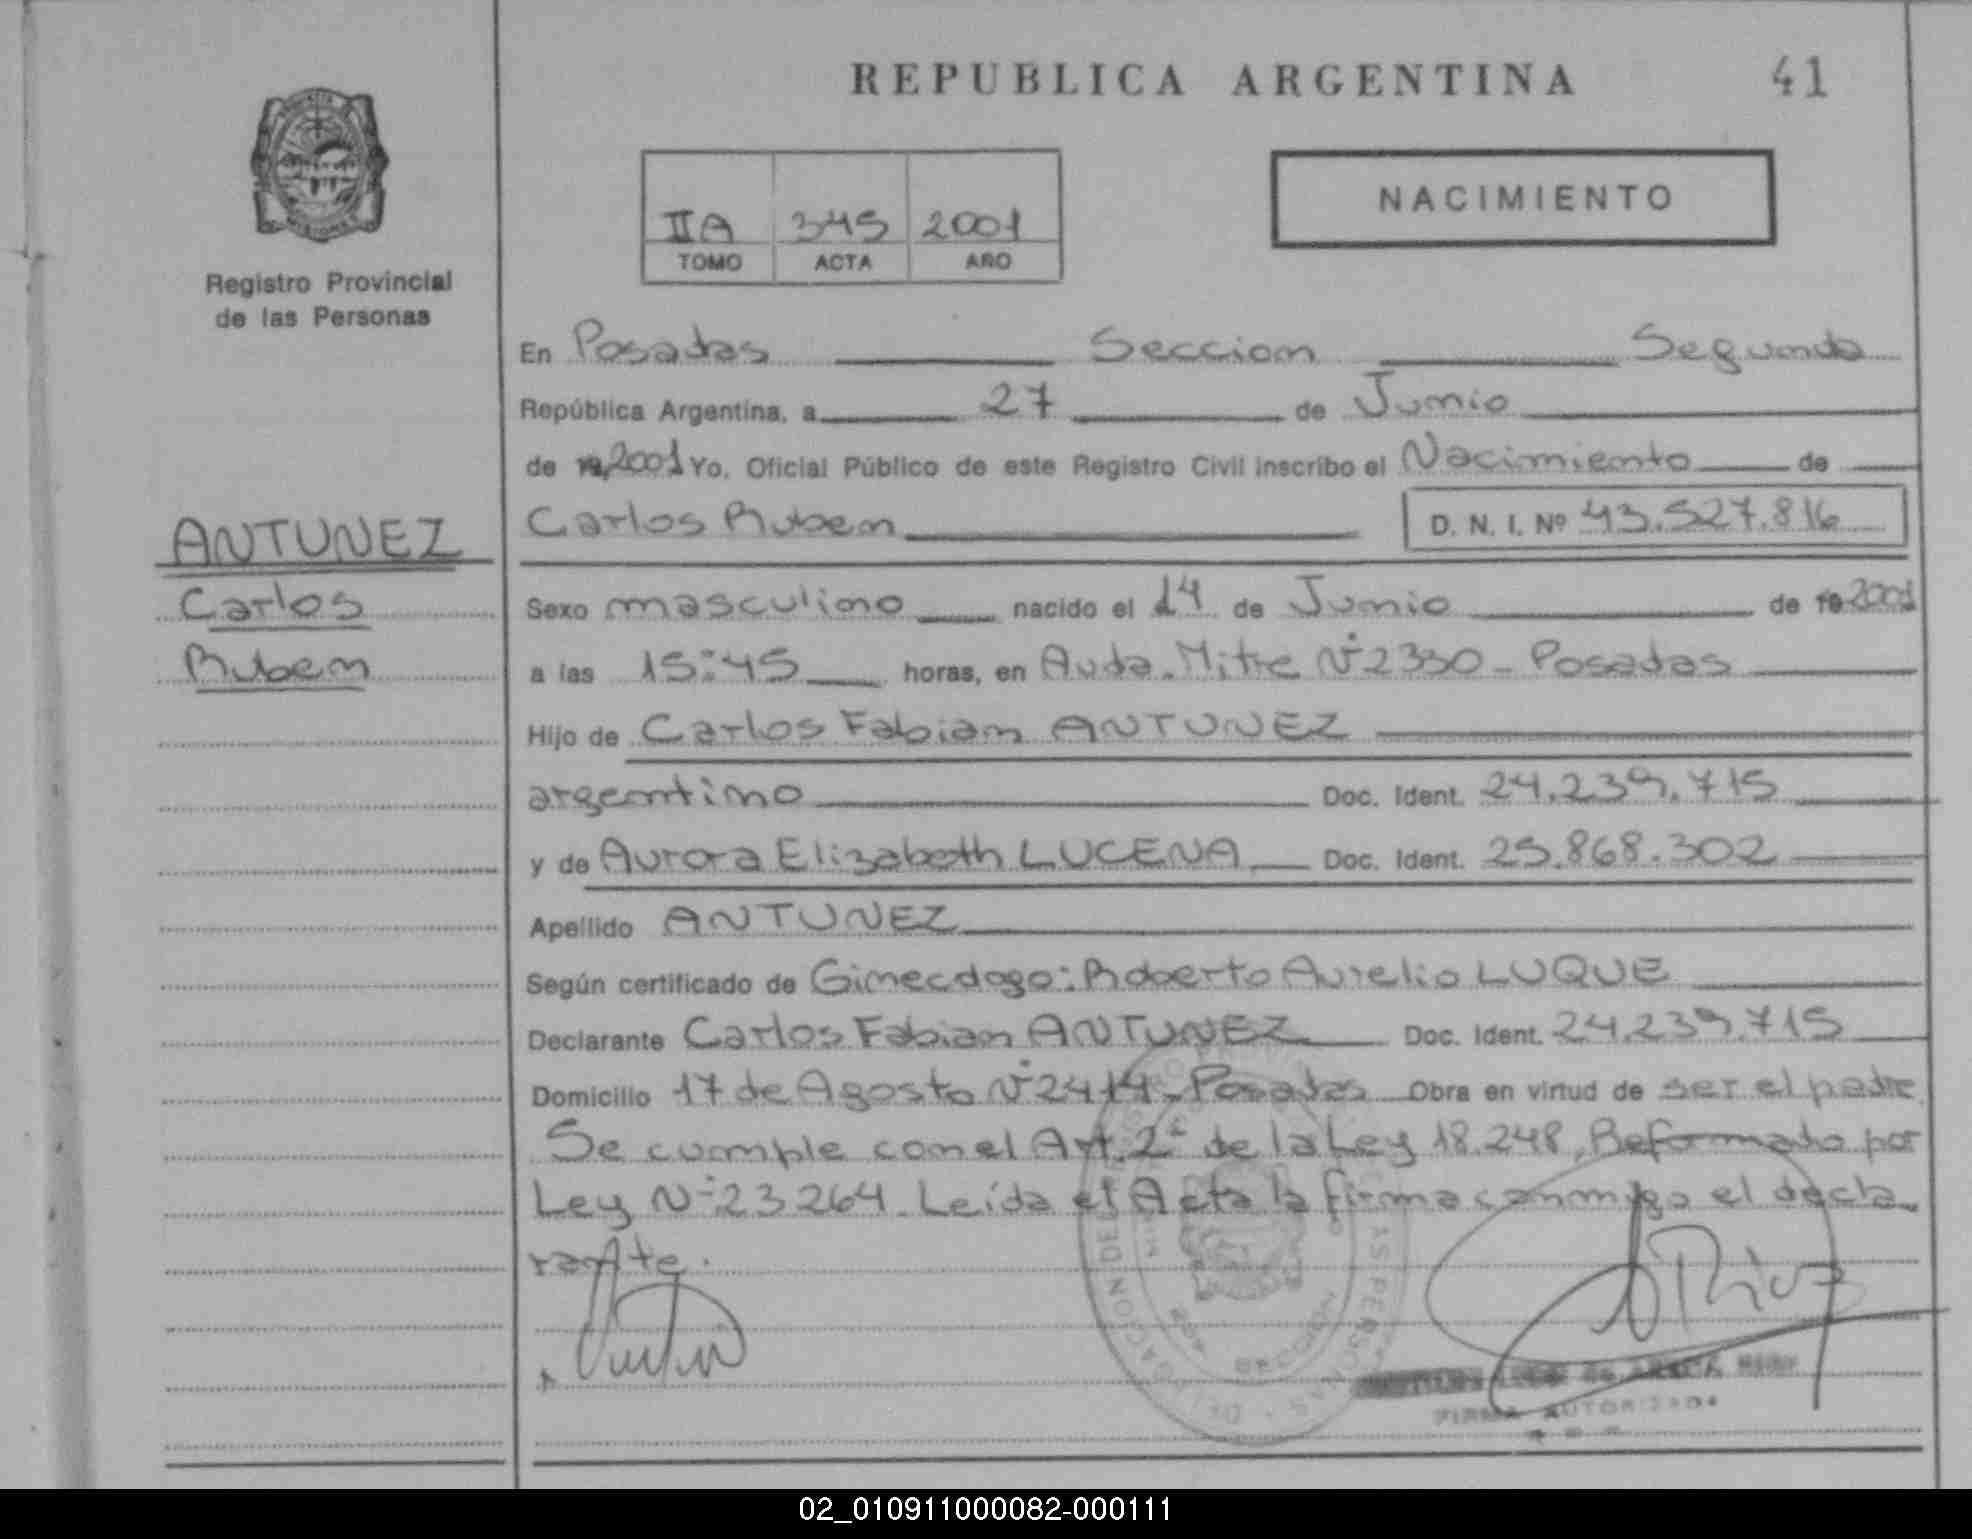 REPUBLICA ARGENTINA
41
IIA 345 2001
TOMO ACTA AÑO
NACIMIENTO
Registro Provincial
de las Personas
ANTUNEZ
Carlos
Ruben
En Posadas Seccion Segunda
República Argentina, a 27 de Junio
de 19 2001 Yo, Oficial Público de este Registro Civil inscribo el Nacimiento de
Carlos Ruben D. N. I. Nº 43.527.816
Sexo masculino nacido el 14 de Junio de 19 2001
a las 15:45 horas, en Avda. Mitre Nº 2330 - Posadas
Hijo de Carlos Fabian ANTUNEZ
argentino Doc. Ident. 24.239.715
y de Aurora Elizabeth LUCENA Doc. Ident. 25.868.302
Apellido ANTUNEZ
Según certificado de Ginecologo: Roberto Aurelio LUQUE
Declarante Carlos Fabian ANTUNEZ Doc. Ident. 24.239.715
Domicilio 17 de Agosto Nº 2414 - Posadas Obra en virtud de ser el padre
Se cumple con el Art. 2º de la Ley 18.248, Reformado por
Ley Nº 23264. Leída el Acta la firma conmigo el decla-
rante.
FIRMA AUTORIZADA
02_010911000082-000111